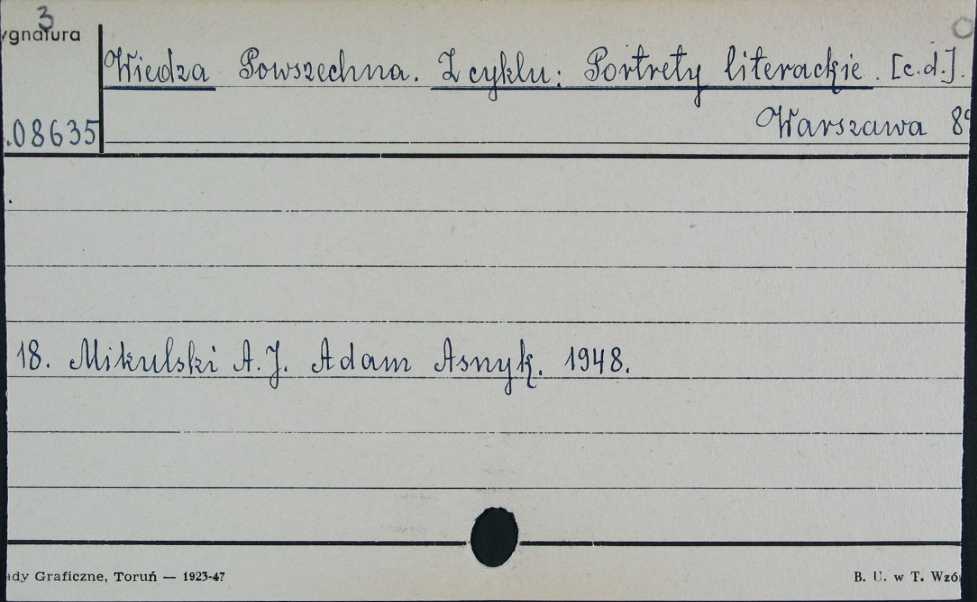 3
ygnatura
Wiedza Powszechna. Z cyklu: Portrety literackie. [c.d.].
.08635
Warszawa 8°
18. Mikulski A.J. Adam Asnyk. 1948.
ady Graficzne, Toruń — 1923-47
B. U. w T. Wzó